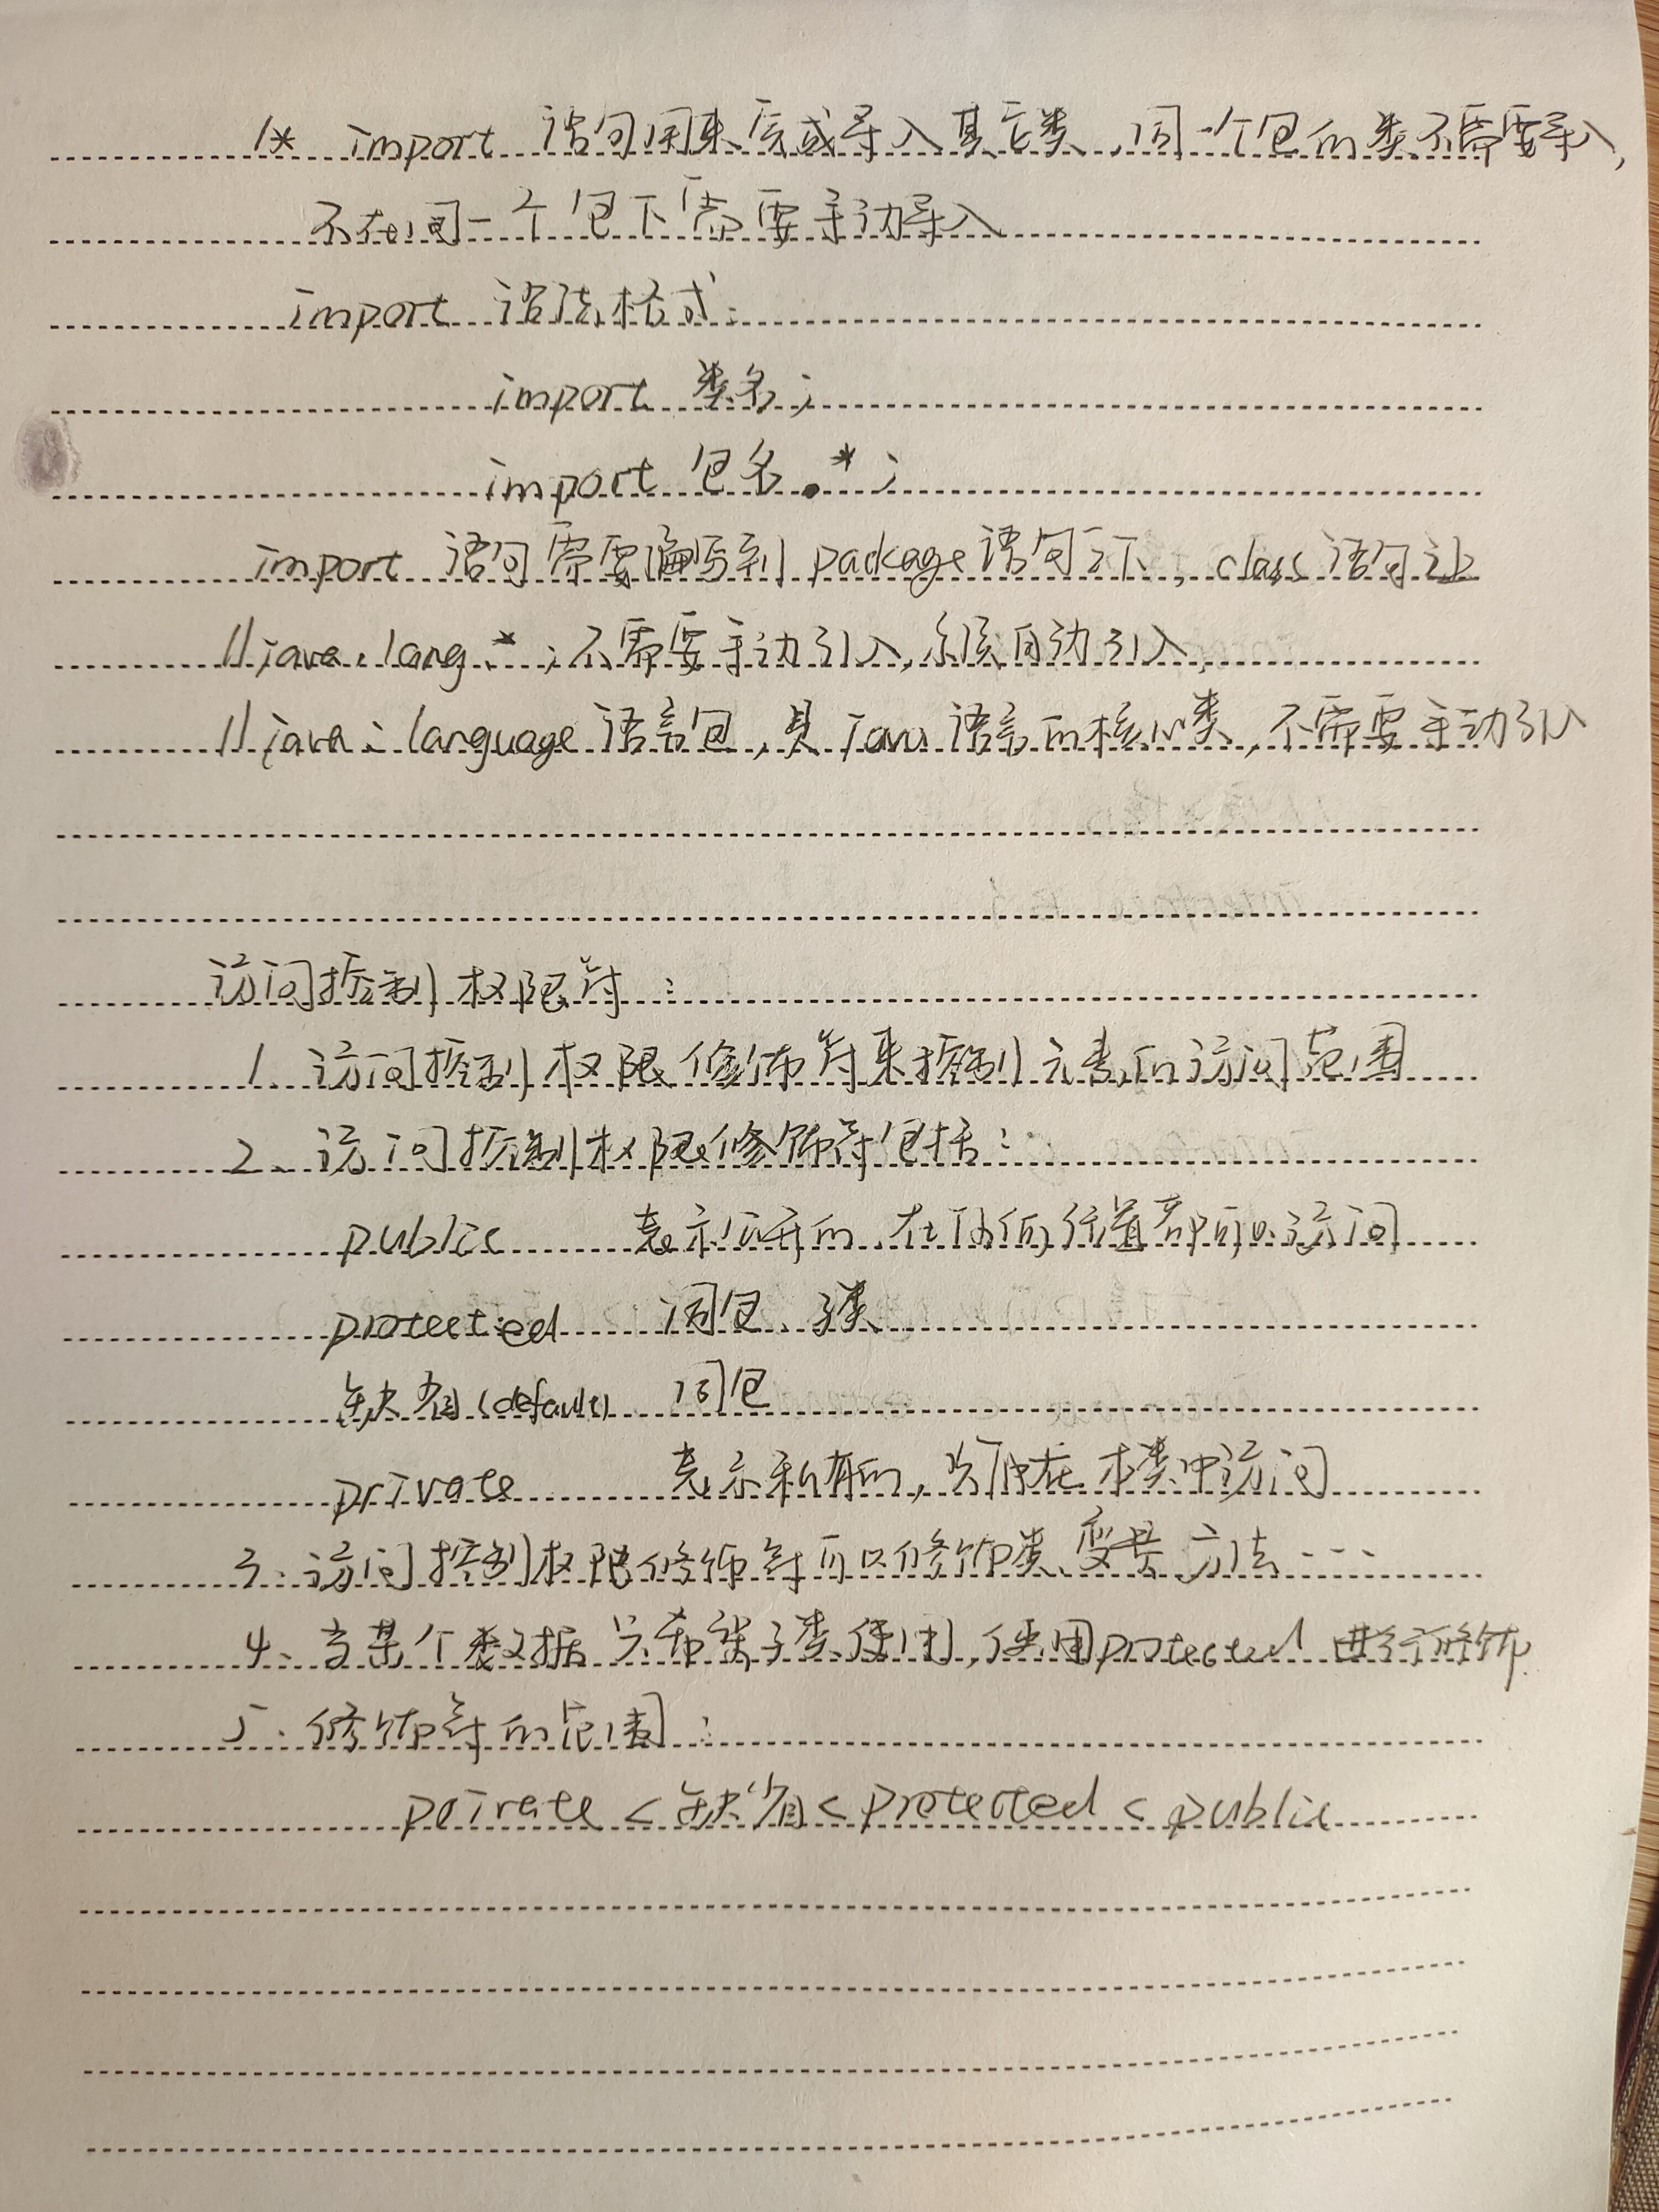 /* import 语句用来完成导入其它类,同一个包的类不需要导入,
不在同一个包下需要手动导入
import 语法格式:
import 类名;
import 包名.*;
import 语句需要编写到package语句之下,class语句之上
//java.lang.*;不需要手动引入,系统自动引入,
//java:language语言包,是java语言的核心类,不需要手动引入
访问控制权限符:
1.访问控制权限修饰符来控制元素的访问范围
2、访问控制权限修饰符包括:
public 表示公开的、在任何位置都可以访问
protected 同包、子类
缺省(default) 同包
private 表示私有的,只能在本类中访问
3、访问控制权限修饰符可以修饰类、变量、方法……
4、当某个数据只希望子类使用,使用protected进行修饰.
5.修饰符的范围:
private < 缺省 < protected < public